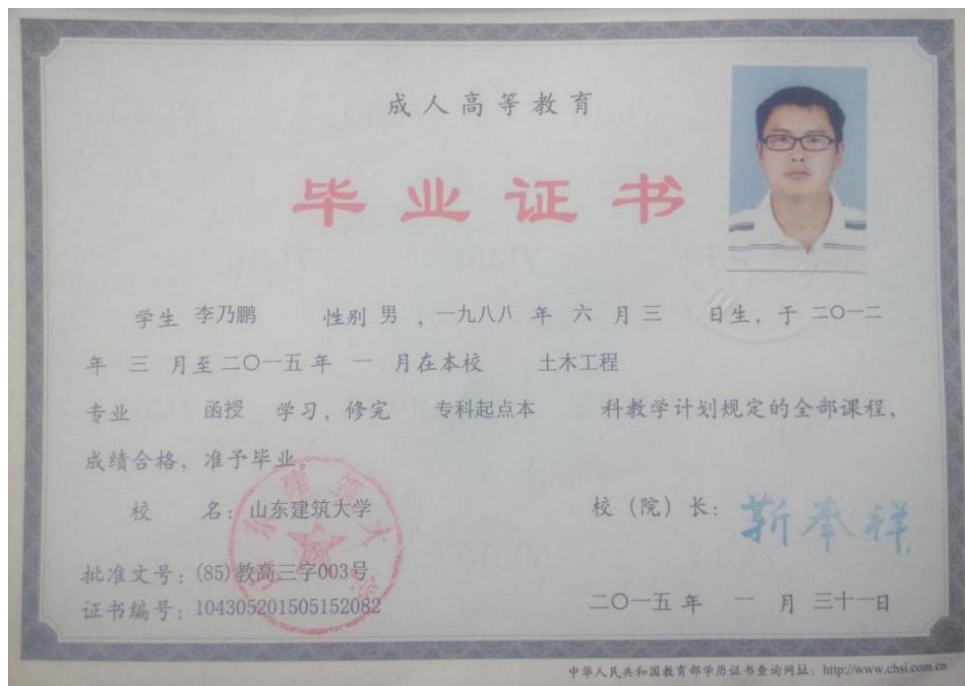 成人高等教育
毕业证书
学生 李乃鹏 性别 男 ，一九八八 年 六 月 三 日生，于 二〇一二
年 三 月至 二〇一五 年 一 月在本校 土木工程
专业 函授 学习，修完 专科起点本 科教学计划规定的全部课程，
成绩合格，准予毕业。
校 名：山东建筑大学
校（院）长：靳奉祥
批准文号：(85)教高三字003号
证书编号：104305201505152082
二〇一五 年 一 月 三十一日
山东建筑大学
中华人民共和国教育部学历证书查询网址：http://www.chsi.com.cn